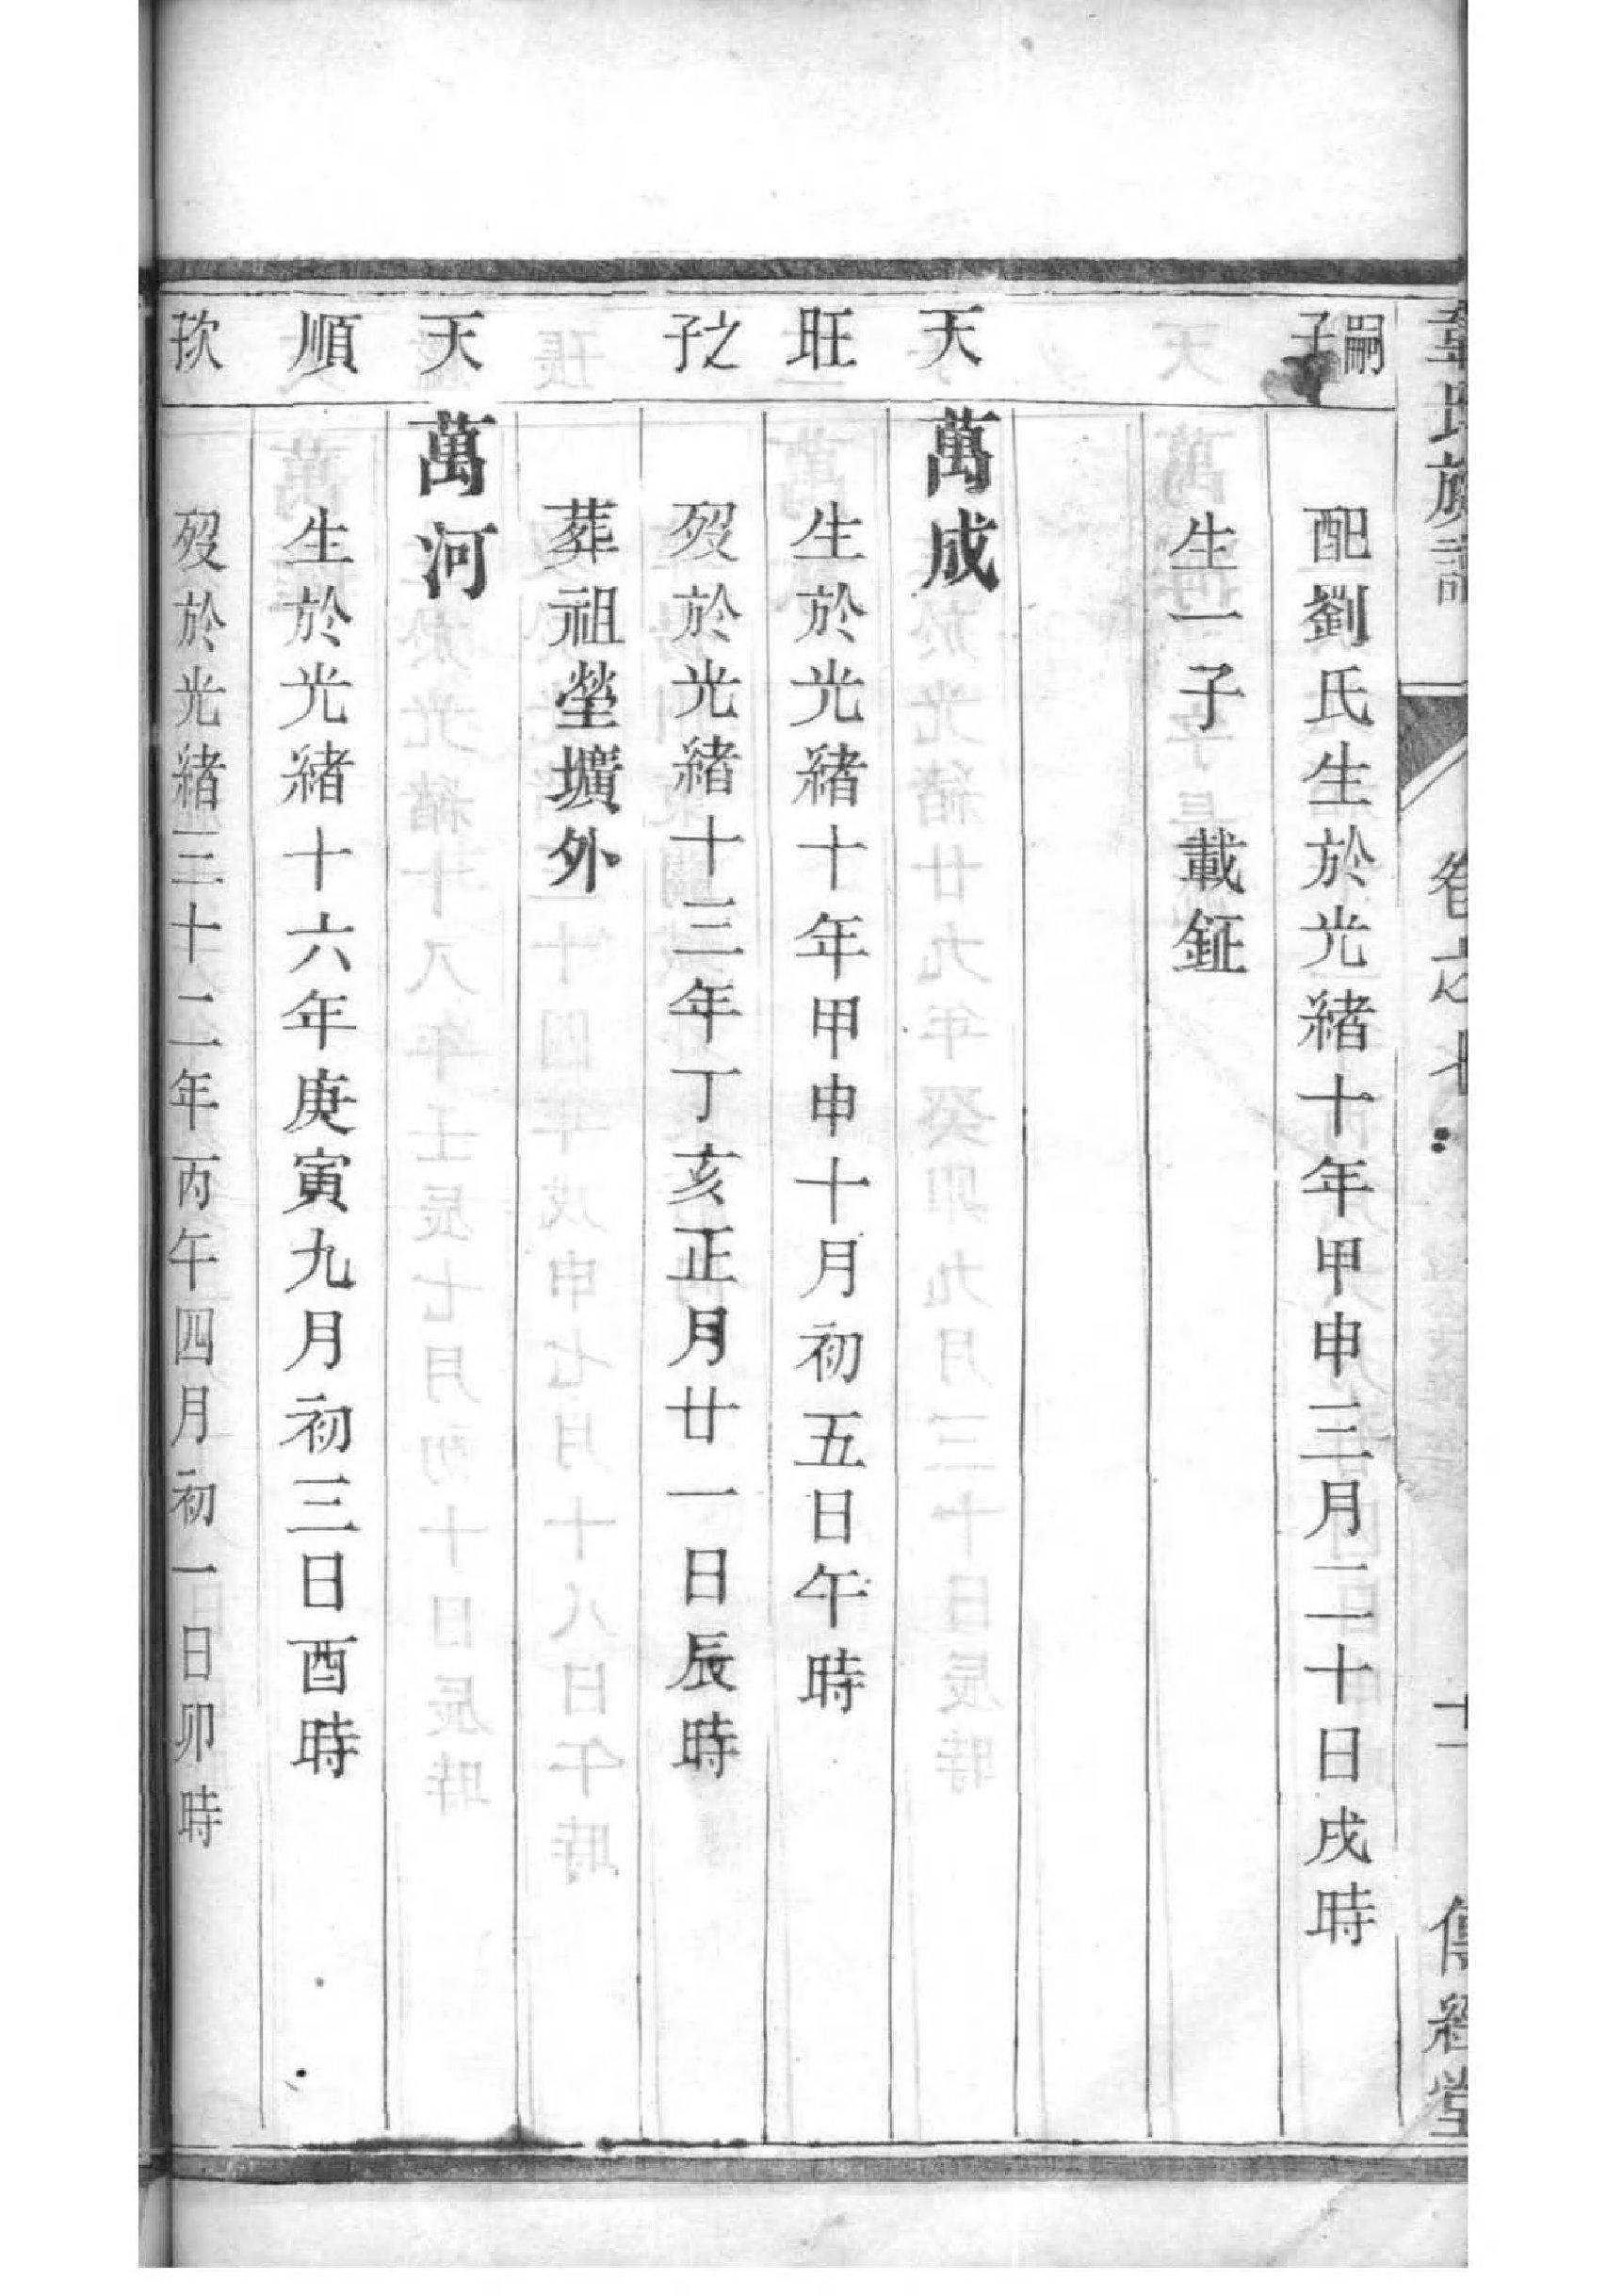 韋氏族譜
卷之七
十一
傳經堂
嗣子
配劉氏生於光緒十年甲申三月二十日戌時
生一子 載鉦
天
萬成
旺
生於光緒十年甲申十月初五日午時
之子
歿於光緒十三年丁亥正月廿一日辰時
葬祖塋壙外
天
萬河
順
生於光緒十六年庚寅九月初三日酉時
次子
歿於光緒三十二年丙午四月初一日卯時